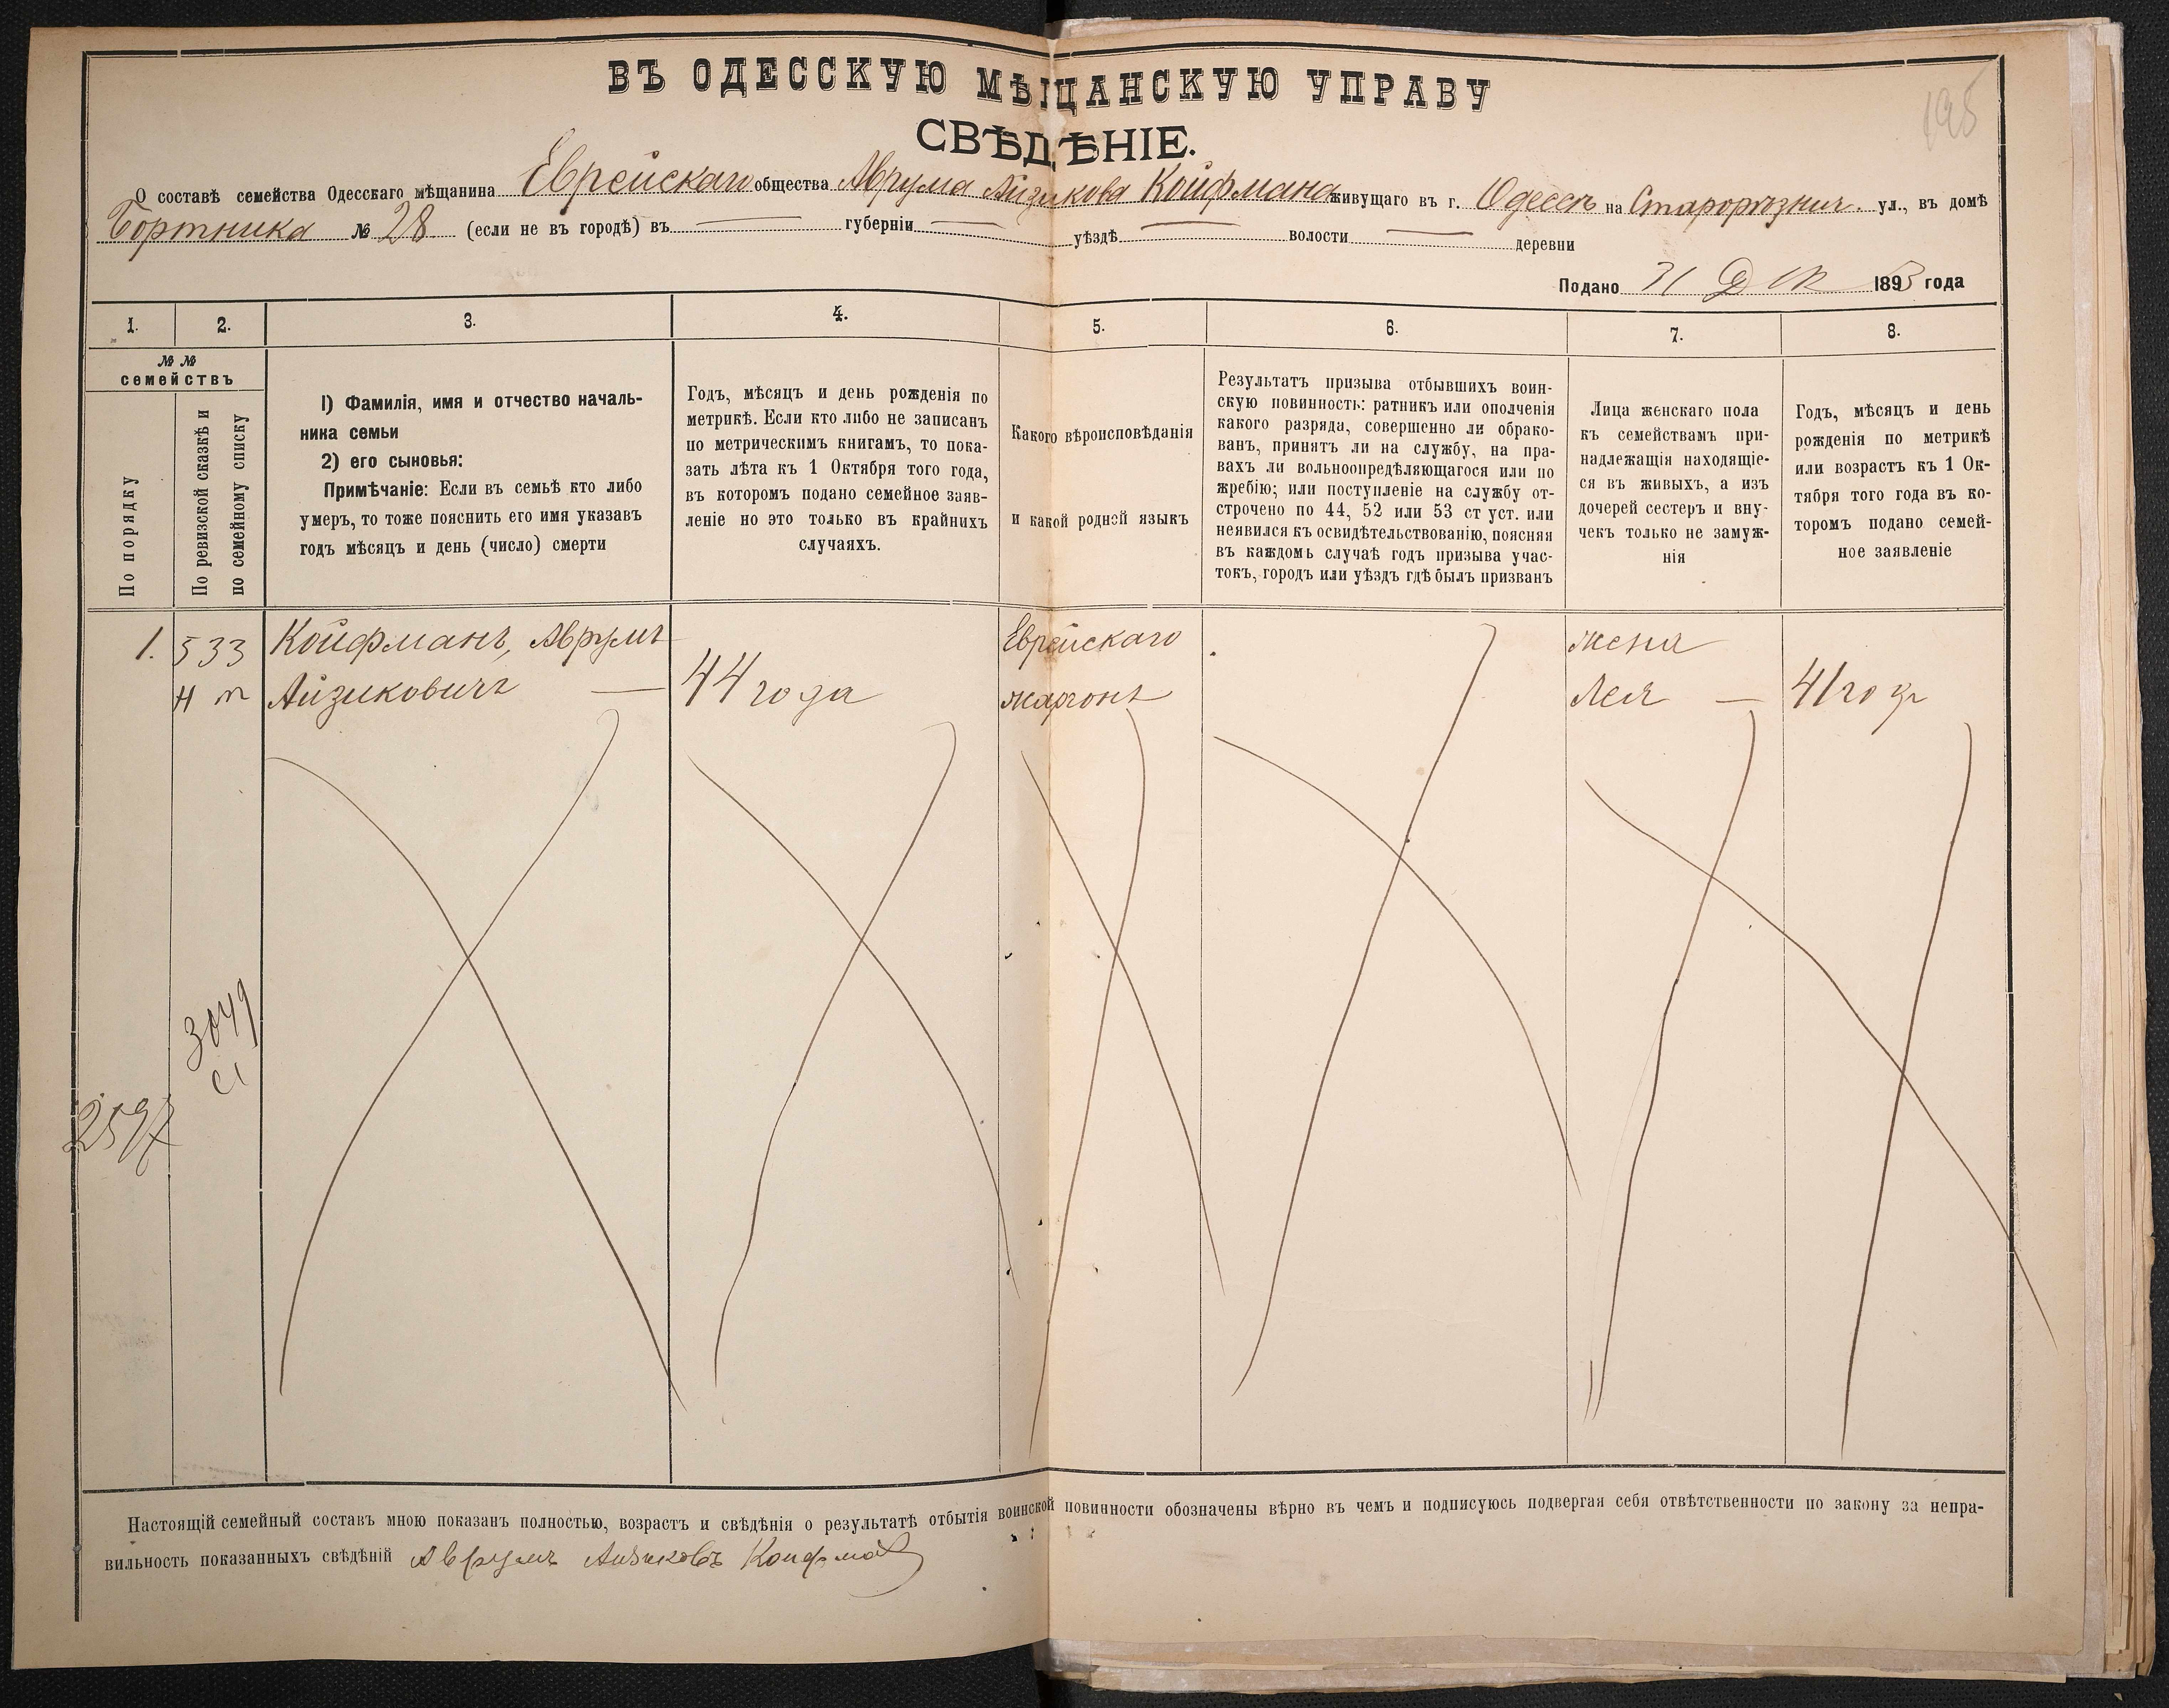 ВЪ ОДЕССКУЮ МѢЩАНСКУЮ УПРАВУ
195
СВѢДѢНІЕ.
О составѣ семейства Одесскаго мѣщанина Еврейскаго общества Аврума Айзикова Койфмана живущаго въ г. Одессѣ на Старорѣзнич. ул., въ домѣ
Бортника № 28 (если не въ городѣ) въ — губерніи — уѣздѣ — волости — деревни
Подано 31 Дек 1893 года
1. 2. 3. 4. 5. 6. 7. 8.
№ №
семействъ
По порядку
По ревизской сказкѣ и
по семейному списку
1) Фамилія, имя и отчество началь-
ника семьи
2) его сыновья:
Примѣчаніе: Если въ семьѣ кто либо
умеръ, то тоже пояснить его имя указавъ
годъ мѣсяцъ и день (число) смерти
Годъ, мѣсяцъ и день рожденія по
метрикѣ. Если кто либо не записанъ
по метрическимъ книгамъ, то пока-
зать лѣта къ 1 Октября того года,
въ которомъ подано семейное заяв-
леніе но это только въ крайнихъ
случаяхъ.
Какого вѣроисповѣданія
и какой родной языкъ
Результатъ призыва отбывшихъ воин-
скую повинность: ратникъ или ополченія
какого разряда, совершенно ли обрако-
ванъ, принятъ ли на службу, на пра-
вахъ ли вольноопредѣляющагося или по
жребію; или поступленіе на службу от-
строчено по 44, 52 или 53 ст уст. или
неявился къ освидѣтельствованію, поясняя
въ каждомъ случаѣ годъ призыва учас-
токъ, городъ или уѣздъ гдѣ былъ призванъ
Лица женскаго пола
къ семействамъ при-
надлежащія находящіе-
ся въ живыхъ, а изъ
дочерей сестеръ и вну-
чекъ только не замуж-
нія
Годъ, мѣсяцъ и день
рожденія по метрикѣ
или возрастъ къ 1 Ок-
тября того года въ ко-
торомъ подано семей-
ное заявленіе
1. 533 Койфманъ, Аврумъ Еврейскаго жена
Айзиковичъ — 44 года жаргонъ Лея — 41 годъ
3049
2597
Настоящій семейный составъ мною показанъ полностью, возрастъ и свѣдѣнія о результатѣ отбытія воинской повинности обозначены вѣрно въ чемъ и подписуюсь подвергая себя отвѣтственности по закону за непра-
вильность показанныхъ свѣдѣній Аврумъ Айзиковъ Койфман